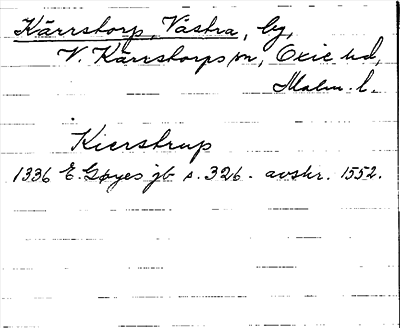 Kärrstorp, Västra, by,
V. Kärrstorps sn, Oxie hd,
Malm. l.
Kierstrup
1336 E. Gøyes jb s. 326. avskr. 1552.